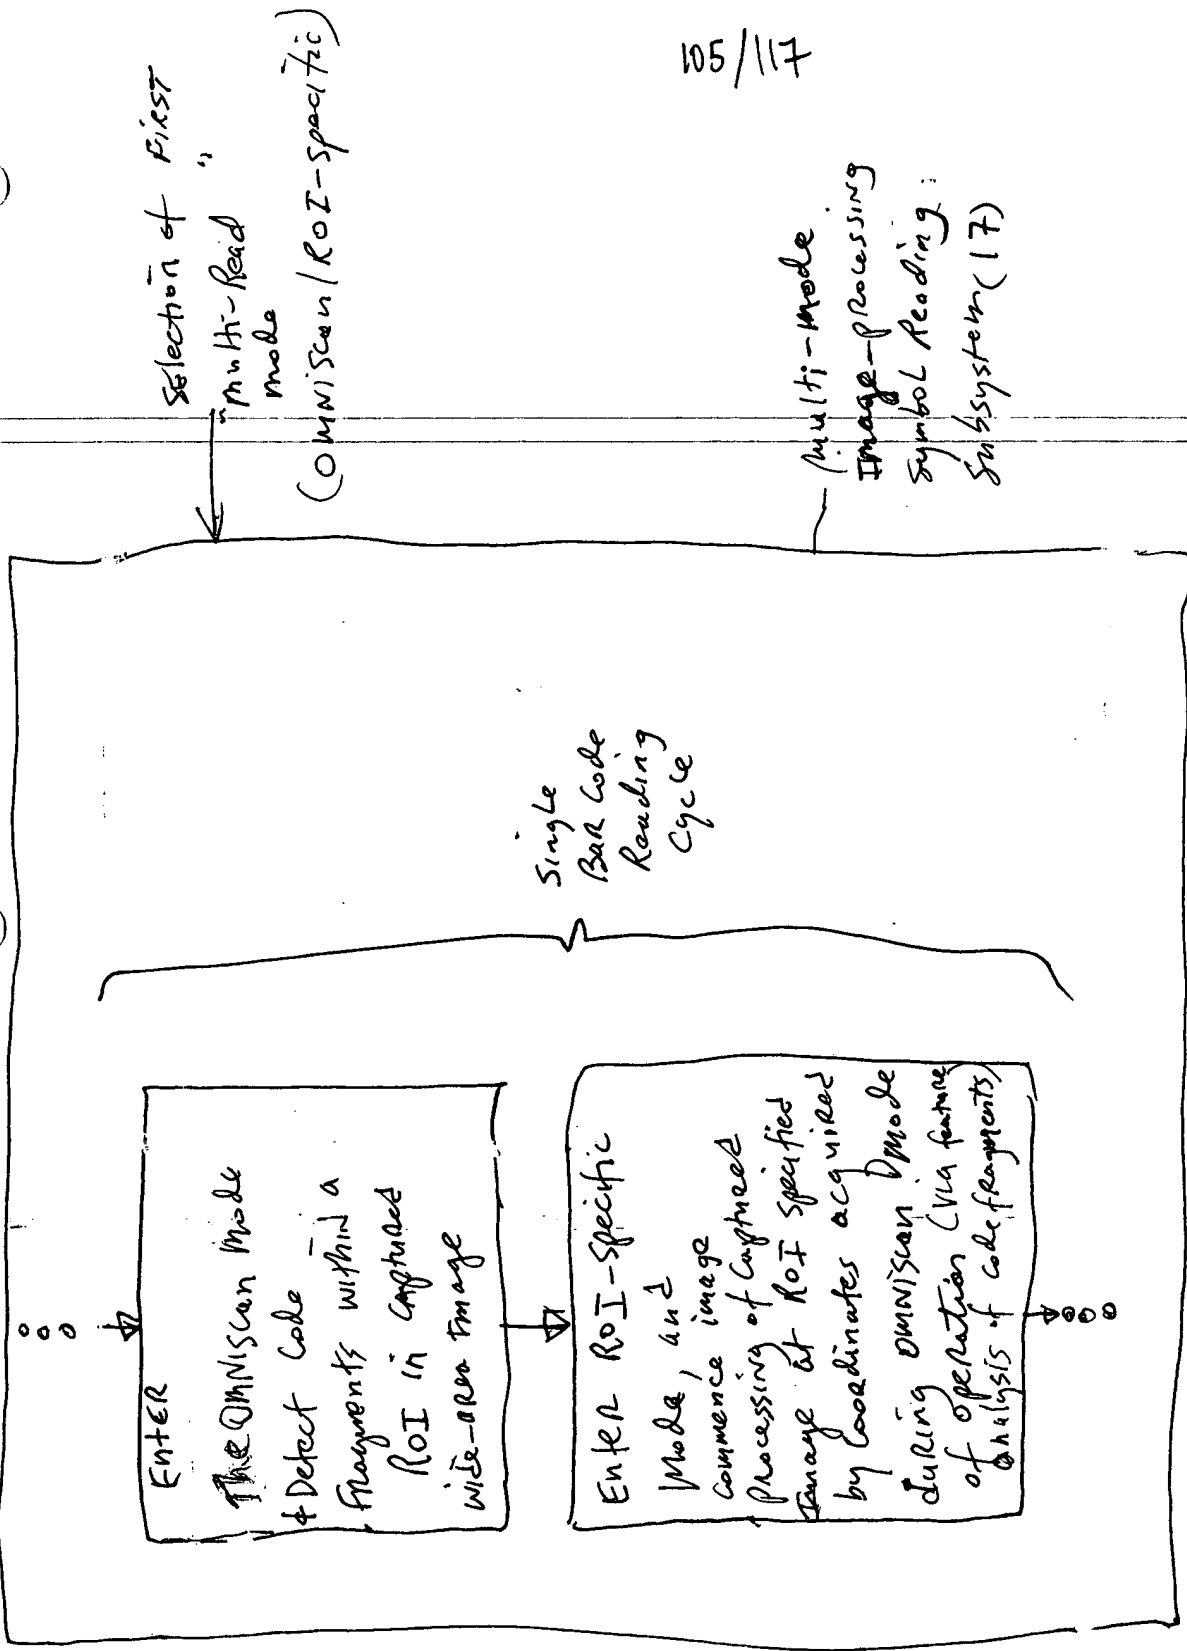 105/117
Selection of First
"Multi-Read"
mode
(OMNiScan/ROI-Specific)
Multi-mode
Image-processing
Symbol Reading
Subsystem (17)
Single
Bar Code
Reading
Cycle
Enter
The OMNiScan Mode
& Detect Code
Fragments within a
ROI in captured
wide-area Image
Enter ROI-Specific
Mode, and
commence image
processing of captured
Image at ROI specified
by coordinates acquired
during OMNiScan Mode
of operation (via feature
analysis of code fragments)